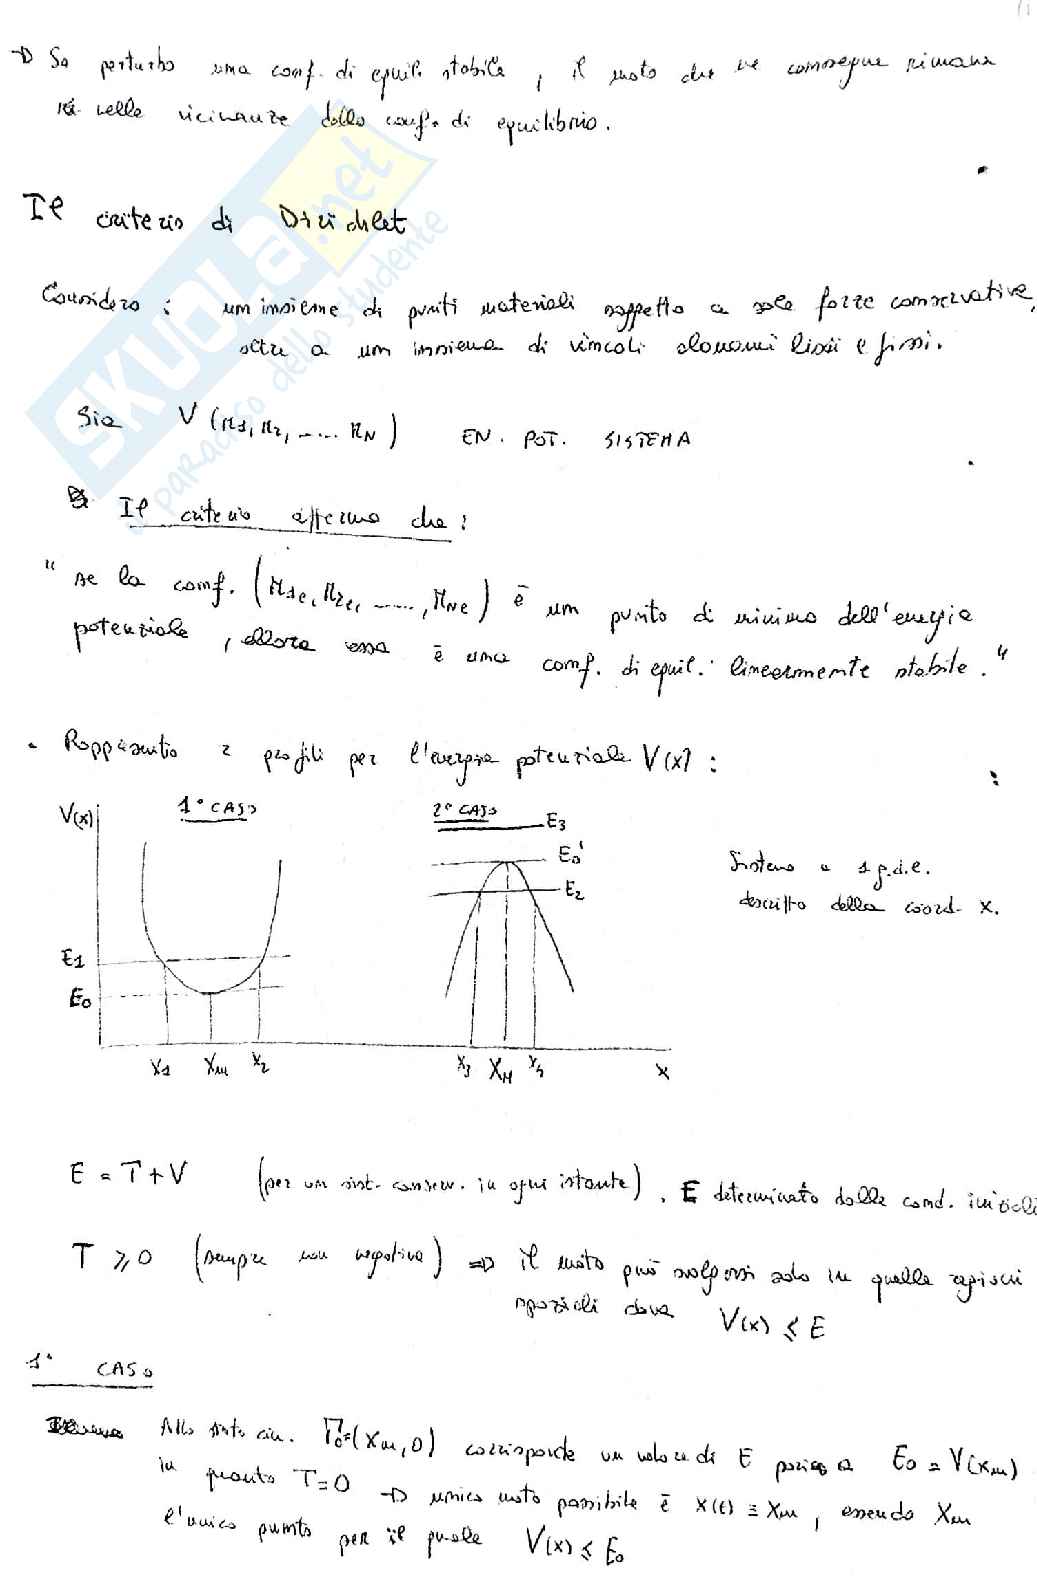 → Se perturbo una conf. di equil. stabile, il moto che ne consegue rimane
nelle vicinanze della conf. di equilibrio.
Il criterio di Dirichlet
Considero : un insieme di punti materiali soggetto a sole forze conservative,
oltre a un insieme di vincoli olonomi lisci e fissi.
Sia V (r1, r2, ..... rN) EN. POT. SISTEMA
Il criterio afferma che :
" se la conf. (r1e, r2e, ....., rNe) è un punto di minimo dell'energia
potenziale, allora essa è una conf. di equil. linearmente stabile. "
• Rappresento 2 profili per l'energia potenziale V(x) :
V(x) 1° CASO 2° CASO E3
E0'
E2
Sistema a 1 g.d.l.
descritto dalla coord. x.
E1
E0
x1 xm x2 x3 xM x4 x
E = T + V (per un sist. conserv. in ogni istante). E determinato dalle cond. iniziali
T ⩾ 0 (sempre non negativa) ⇒ il moto può svolgersi solo in quelle regioni
spaziali dove V(x) ⩽ E
1° CASO
Allo stato cin. Γ0=(xm,0) corrisponde un valore di E pari a E0 = V(xm)
in quanto T=0 → unico moto possibile è x(t) ≡ xm, essendo xm
l'unico punto per il quale V(x) ⩽ E0
SKUOLA.net
paradiso dello studente